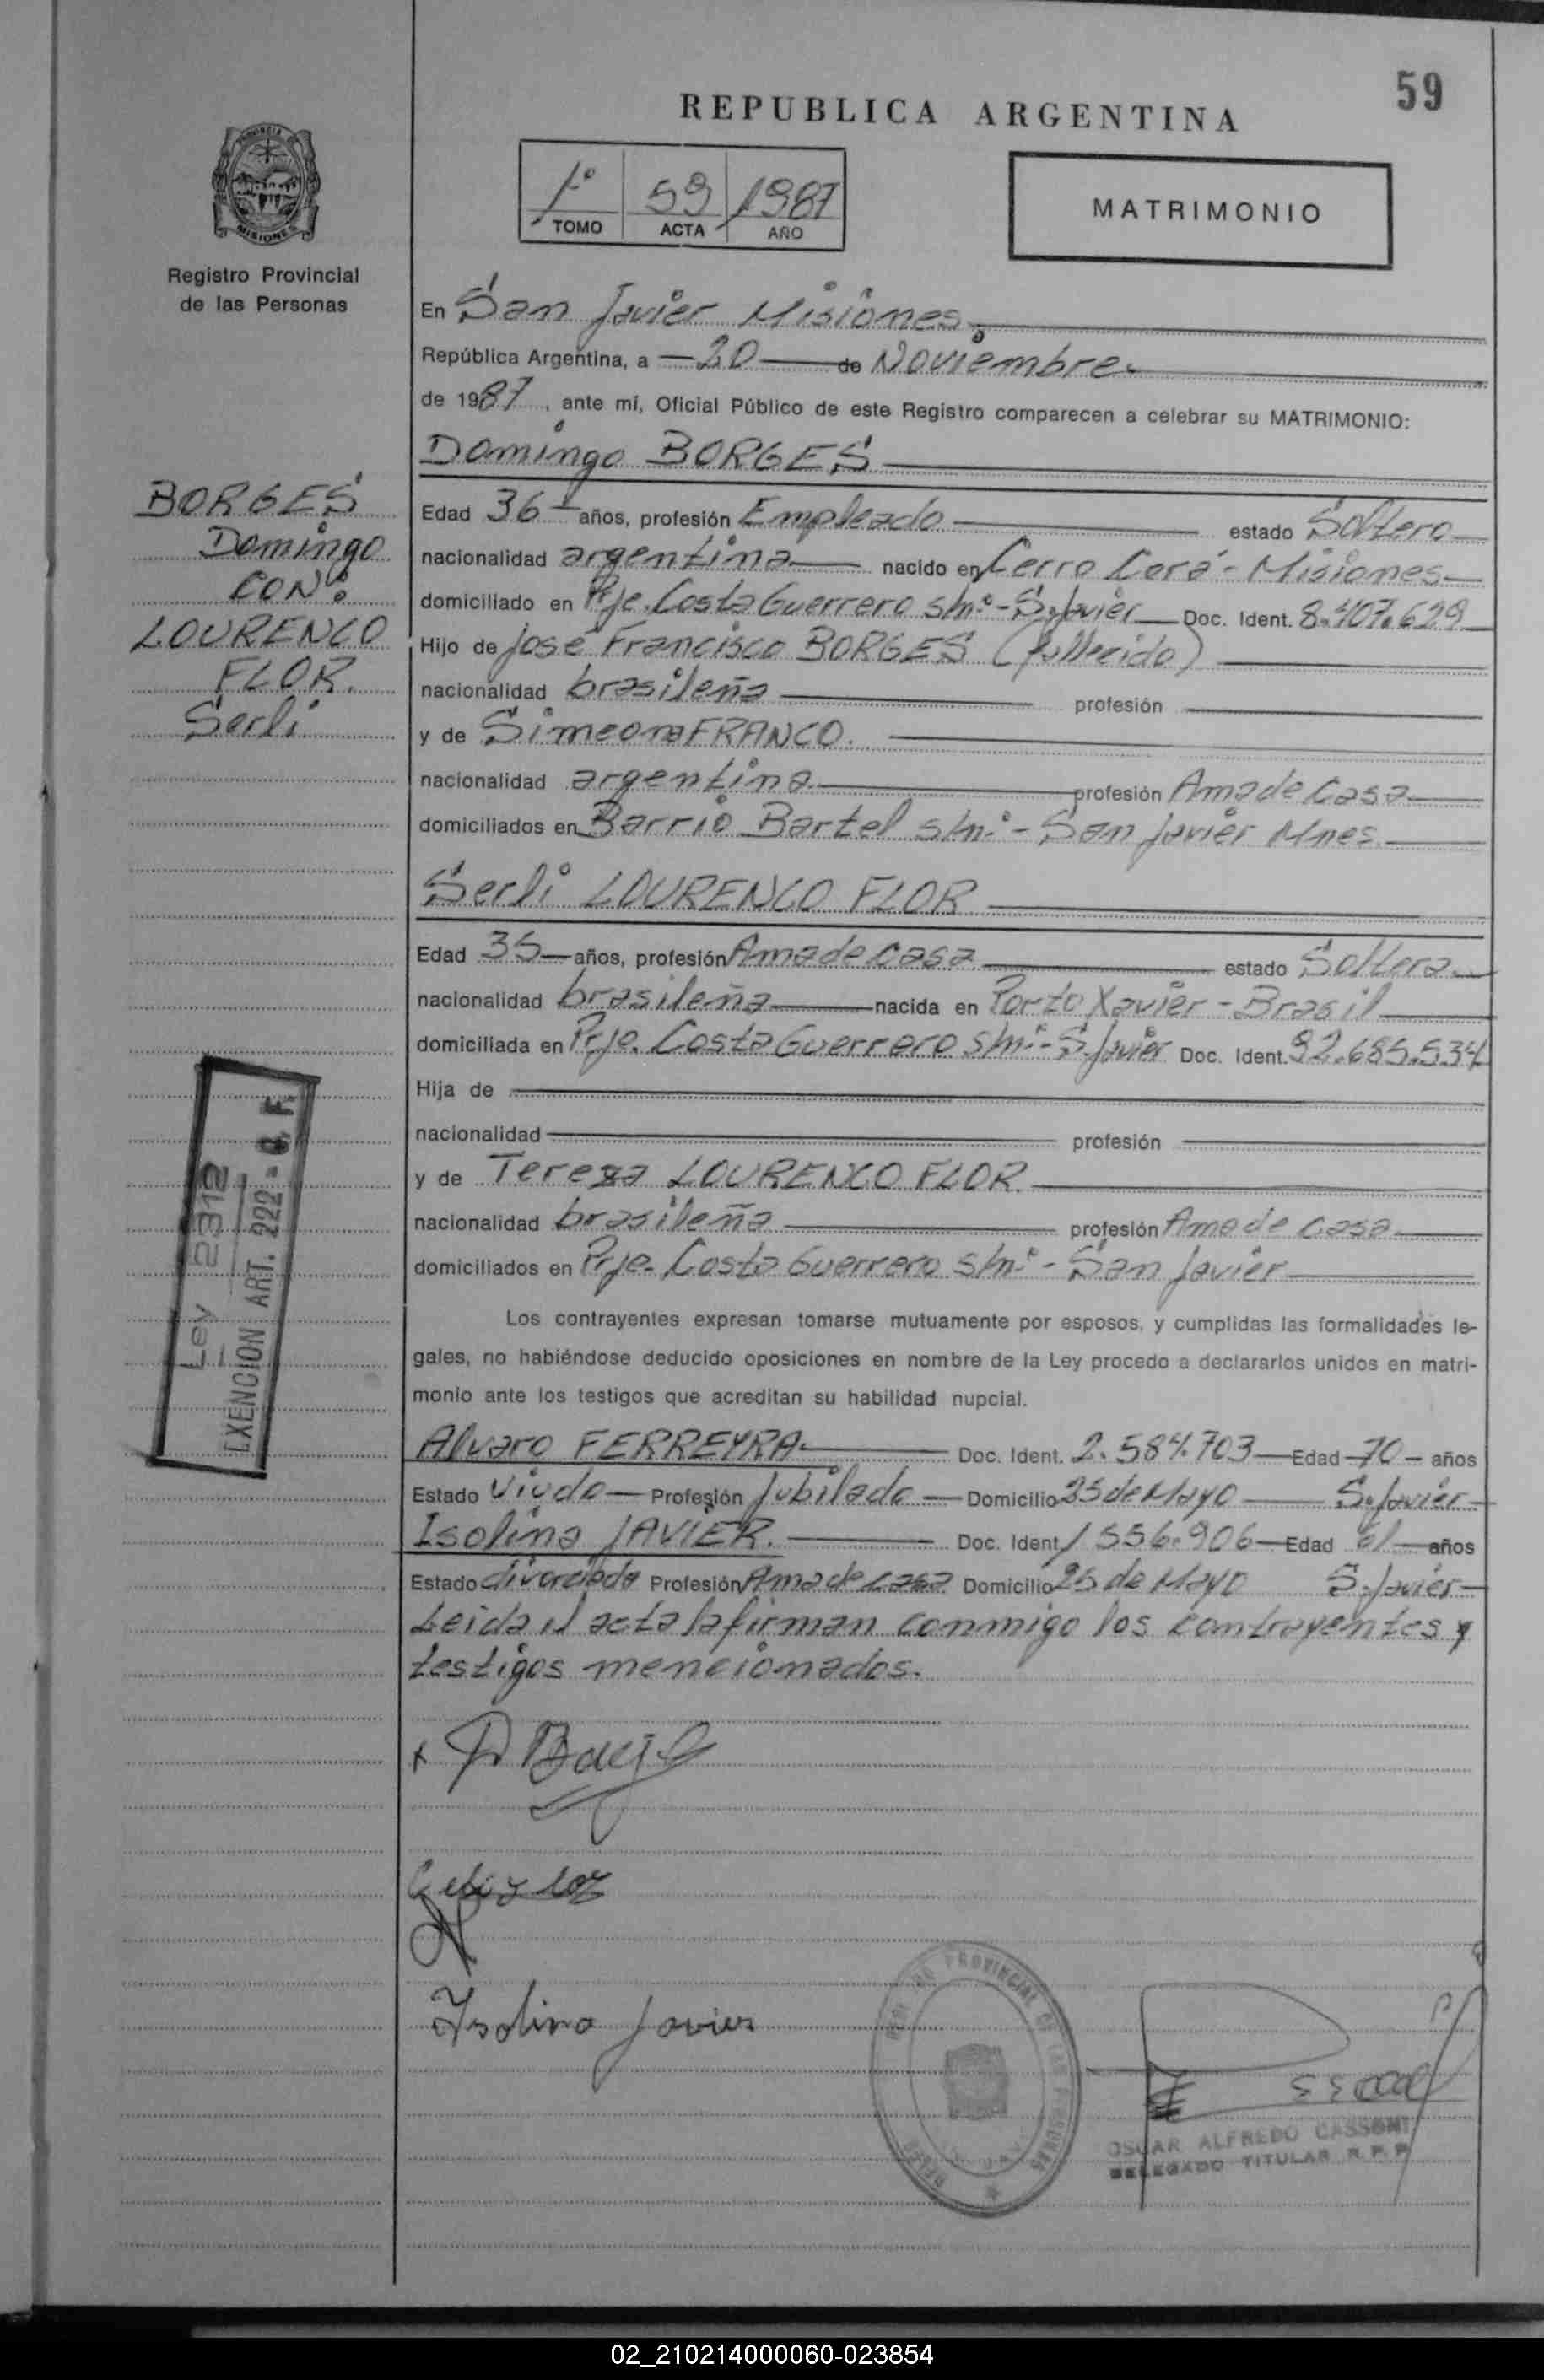 59
REPUBLICA ARGENTINA
1º 59 1987
TOMO ACTA AÑO
MATRIMONIO
PROVINCIA
MISIONES
Registro Provincial
de las Personas
En San Javier Misiones
República Argentina, a 20 de Noviembre
de 1987, ante mí, Oficial Público de este Registro comparecen a celebrar su MATRIMONIO:
Domingo BORGES
BORGES
Domingo
CON:
LOURENCO
FLOR.
Serli
Edad 36 años, profesión Empleado estado Soltero
nacionalidad argentina nacido en Cerro Corá - Misiones
domiciliado en Pje. Costa Guerrero s/nº - S. Javier Doc. Ident. 8.407.629
Hijo de José Francisco BORGES (fallecido)
nacionalidad brasileña profesión
y de Simeona FRANCO.
nacionalidad argentina profesión Ama de Casa
domiciliados en Barrio Bartel s/nº - San Javier Mnes.
Serli LOURENCO FLOR
Edad 35 años, profesión Ama de casa estado Soltera
nacionalidad brasileña nacida en Porto Xavier - Brasil
domiciliada en Pje. Costa Guerrero s/nº - S. Javier Doc. Ident. 92.685.534
Hija de
nacionalidad profesión
y de Tereza LOURENCO FLOR
nacionalidad brasileña profesión Ama de casa
domiciliados en Pje. Costa Guerrero s/nº - San Javier
Ley 2312
EXENCION ART. 222
Los contrayentes expresan tomarse mutuamente por esposos, y cumplidas las formalidades le-
gales, no habiéndose deducido oposiciones en nombre de la Ley procedo a declararlos unidos en matri-
monio ante los testigos que acreditan su habilidad nupcial.
Alvaro FERREYRA Doc. Ident. 2.584.703 Edad 70 años
Estado Viudo Profesión Jubilado Domicilio 25 de Mayo S. Javier
Isolina JAVIER. Doc. Ident. 1556.906 Edad 61 años
Estado divorciada Profesión Ama de casa Domicilio 25 de Mayo S. Javier
Leida el acta la firman conmigo los contrayentes y
testigos mencionados.
Isolina Javier
PROVINCIAL DE LAS PERSONAS
OSCAR ALFREDO CASSONI
DELEGADO TITULAR R.P.P.
02_210214000060-023854